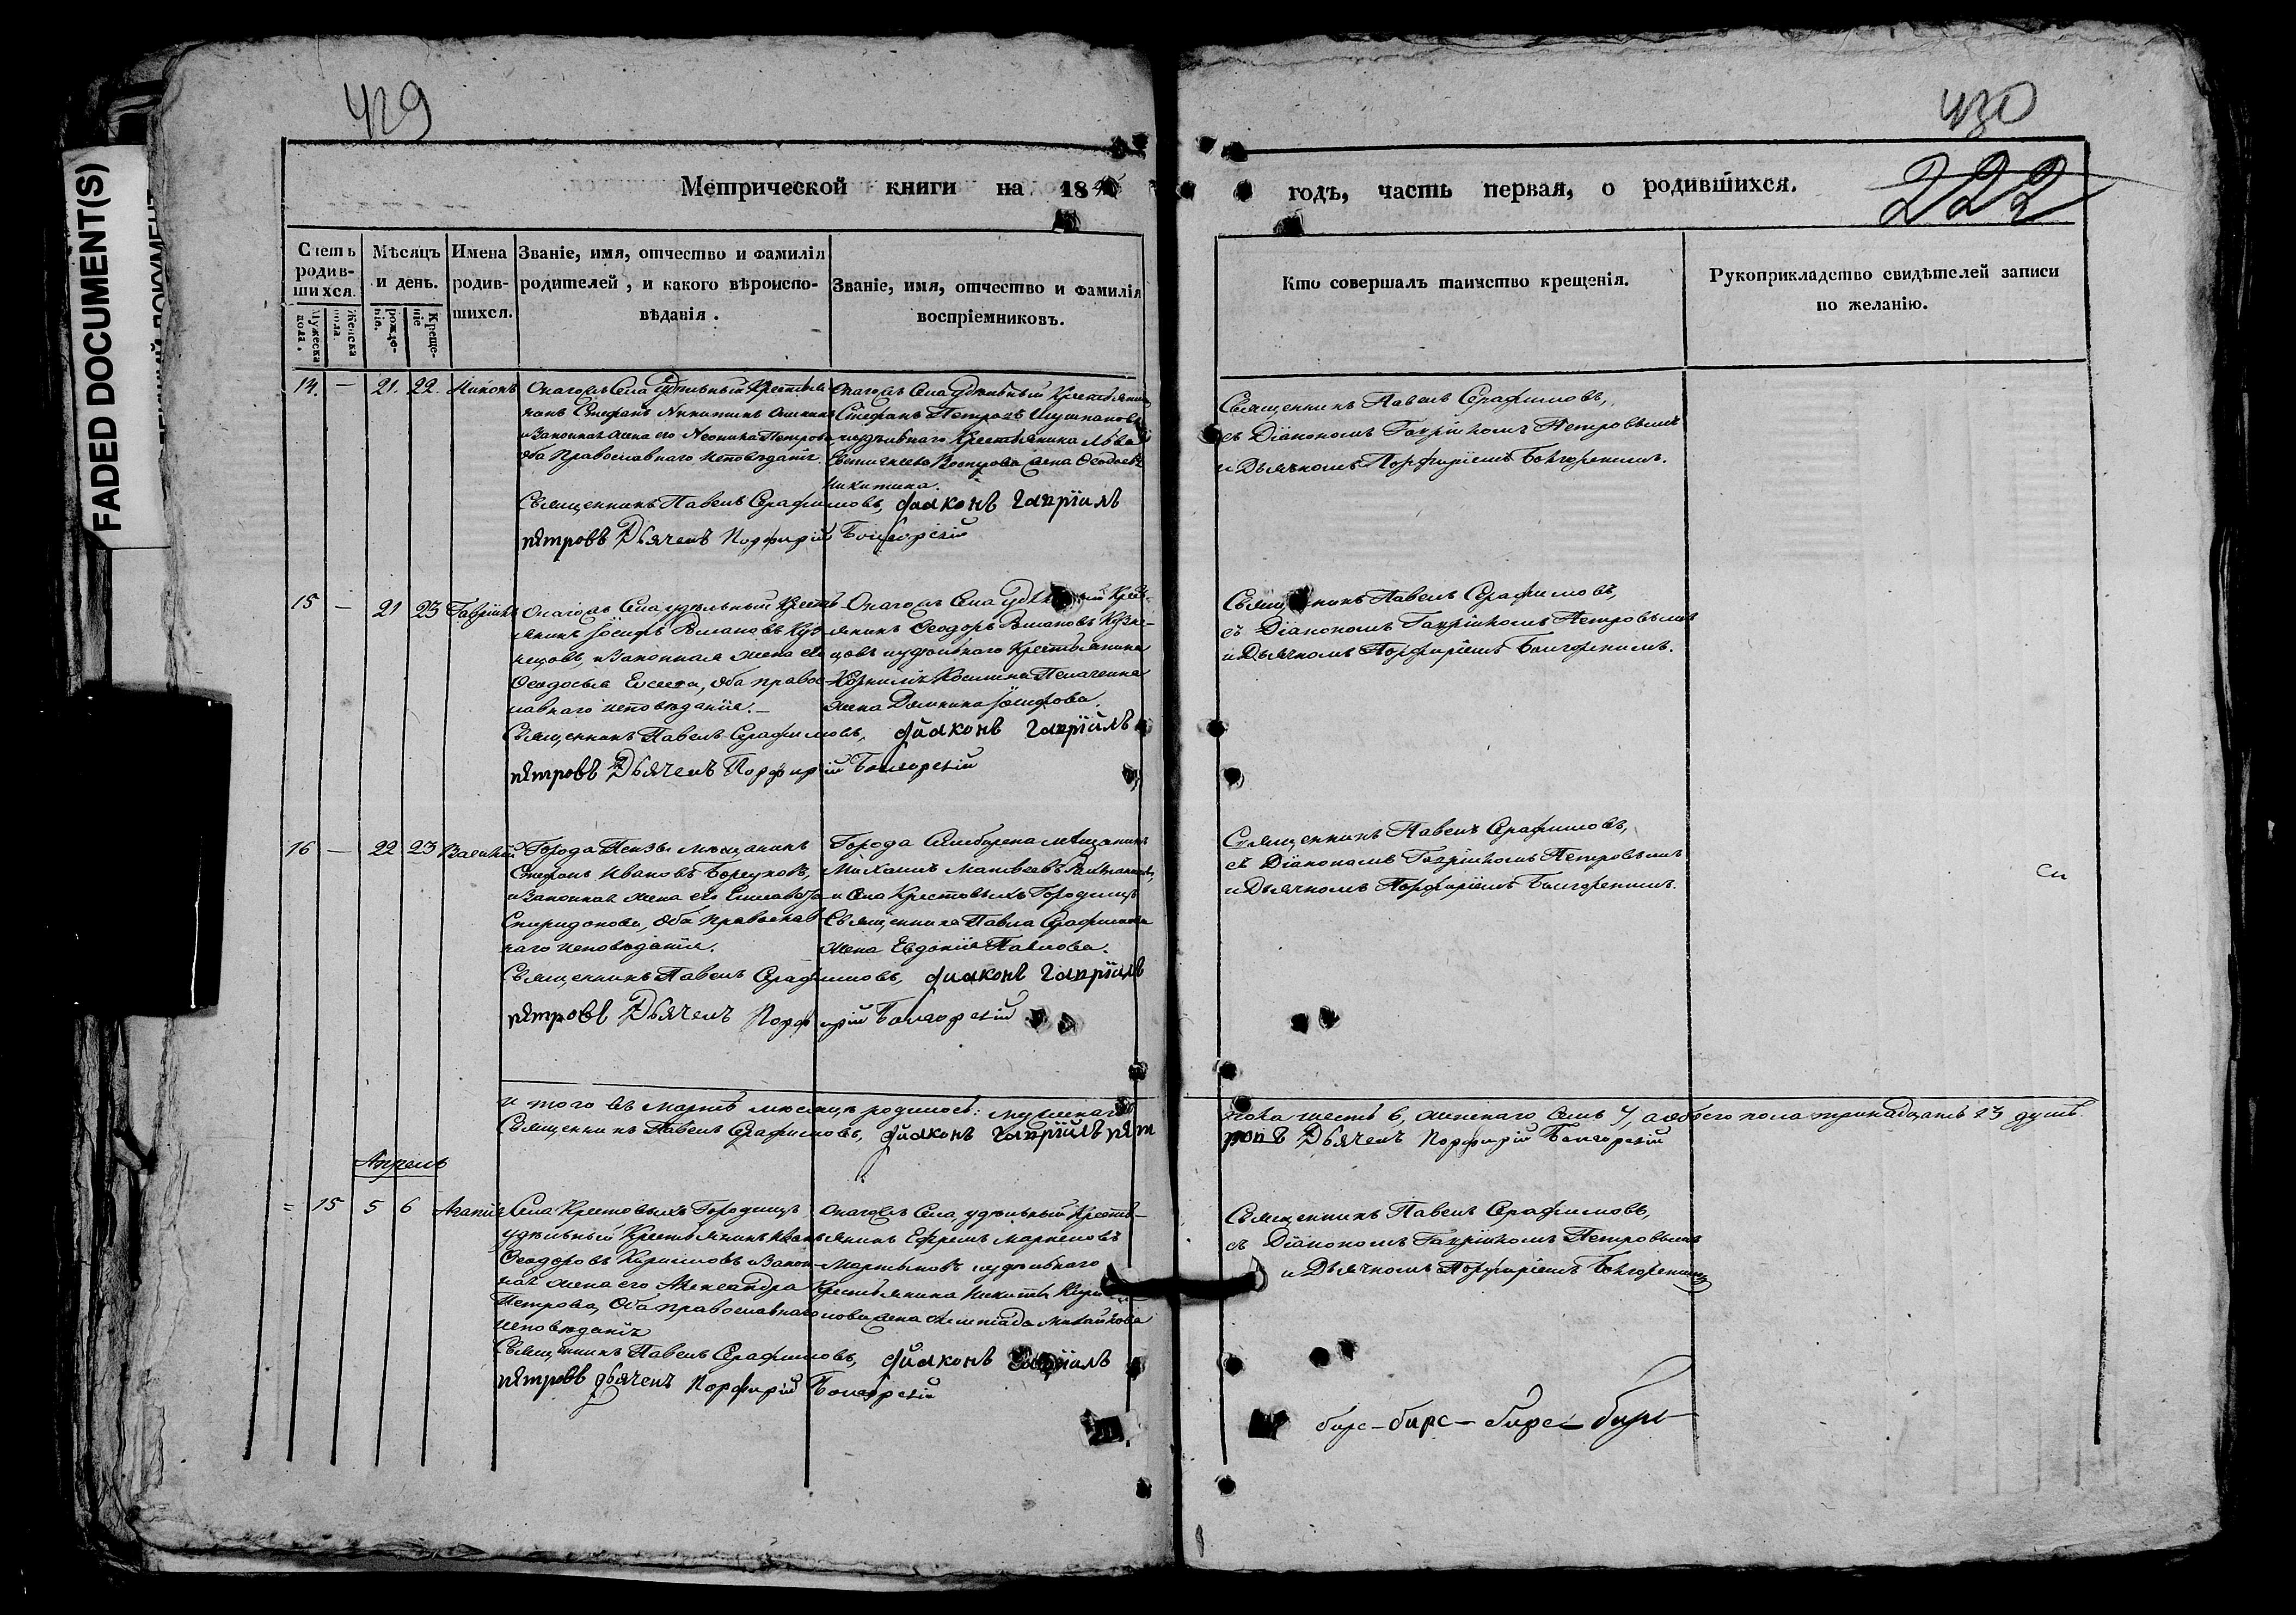 FADED DOCUMENT(S)
429
Метрической книги на 184
Счетъ родившихся.
Мужеска пола.
Женска пола.
Мѣсяцъ и день.
рожденіе.
Крещеніе
Имена родившихся.
Званіе, имя, отчество и фамилія
родителей, и какого вѣроиспо-
вѣданія.
Званіе, имя, отчество и фамилія
воспріемниковъ.
14. — 21. 22. Никонъ
Онагожъ Села Удѣльный Крестья-
нинъ Стефанъ Никитинъ
и Законная жена его Неонила Петрова
оба Православнаго исповѣданія.
Онагожъ Села Удѣльный Крестьянинъ
Стефанъ Петровъ
и удѣльнаго Крестьянина Льва
жена Ѳеодосья
Никитина.
Священникъ Павелъ Серафимовъ, діаконъ гавріилъ
петровъ Дьячекъ Порфирій Болгорскій
15 — 21 23 Гавріилъ
Онагожъ Села удѣльный Кресть-
янинъ Іосифъ Романовъ Куз-
нецовъ, и Законная жена его
Ѳеодосья, оба право-
славнаго исповѣданія. —
Онагожъ Села Удѣльный Крес-
янинъ Ѳеодоръ Романовъ Кузне-
цовъ и удѣльнаго Крестьянина
жена Домника Іосифова.
Священникъ Павелъ Серафимовъ, діаконъ гавріилъ
петровъ Дьячекъ Порфирій Болгорскій
16 — 22 23 Василій
Города Пензы мѣщанинъ
Стефанъ Ивановъ
и Законная жена его Елисавета
Спиридонова, оба православ-
наго исповѣданія.
Города Симбирска мѣщанинъ
Михаилъ Матвеевъ
и Села Крестовыхъ Городищъ
Священника Павла Серафимова
жена Евдокія Павлова.
Священникъ Павелъ Серафимовъ, діаконъ гавріилъ
петровъ Дьячекъ Порфирій Болгорскій
и того въ Мартѣ мѣсяцѣ родилось: мужескаго
Священникъ Павелъ Серафимовъ, діаконъ гавріилъ пет
Апрель
= 15 5 6 Агапія
Села Крестовыхъ Городищъ
удѣльный Крестьянинъ Иванъ
Ѳеодоровъ Кириловъ и Закон-
ная жена его Александра
Петрова, Оба православнаго
исповѣданія
Онагожъ Села, удѣльный Кресть-
янинъ Ефремъ Маркеловъ
Мартыновъ и удѣльнаго
Крестьянина Никиты Кири
лова жена Михайлова
Священникъ Павелъ Серафимовъ, діаконъ гавріилъ
петровъ дьячекъ Порфирій Болгорскій
430
222
годъ, часть первая, о родившихся.
Кто совершалъ таинство крещенія.
Рукоприкладство свидѣтелей записи
по желанію.
Священникъ Павелъ Серафимовъ,
съ Діакономъ Гавріиломъ Петровымъ
и Дьячкомъ Порфиріемъ Болгорскимъ.
Священникъ Павелъ Серафимовъ,
съ Діакономъ Гавріиломъ Петровымъ
и Дьячкомъ Порфиріемъ Болгорскимъ.
Священникъ Павелъ Серафимовъ,
съ Діакономъ Гавріиломъ Петровымъ
и Дьячкомъ Порфиріемъ Болгорскимъ.
пола шесть 6, женскаго Семь 7, а обоего пола тринадцать 13 душъ.
ровъ Дьячекъ Порфирій Болгорскій
Священникъ Павелъ Серафимовъ,
съ Діакономъ Гавріиломъ Петровымъ
и Дьячкомъ Порфиріемъ Болгорскимъ